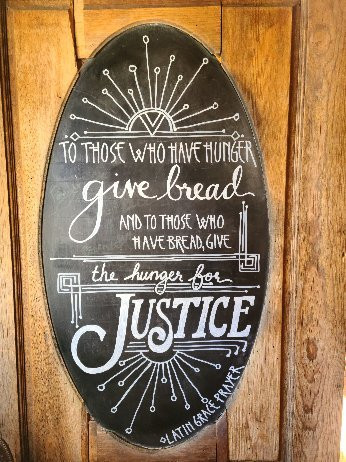 TO THOSE WHO HAVE HUNGER
give bread
AND TO THOSE WHO
HAVE BREAD, GIVE
the hunger for
JUSTICE
LATIN GRACE PRAYER